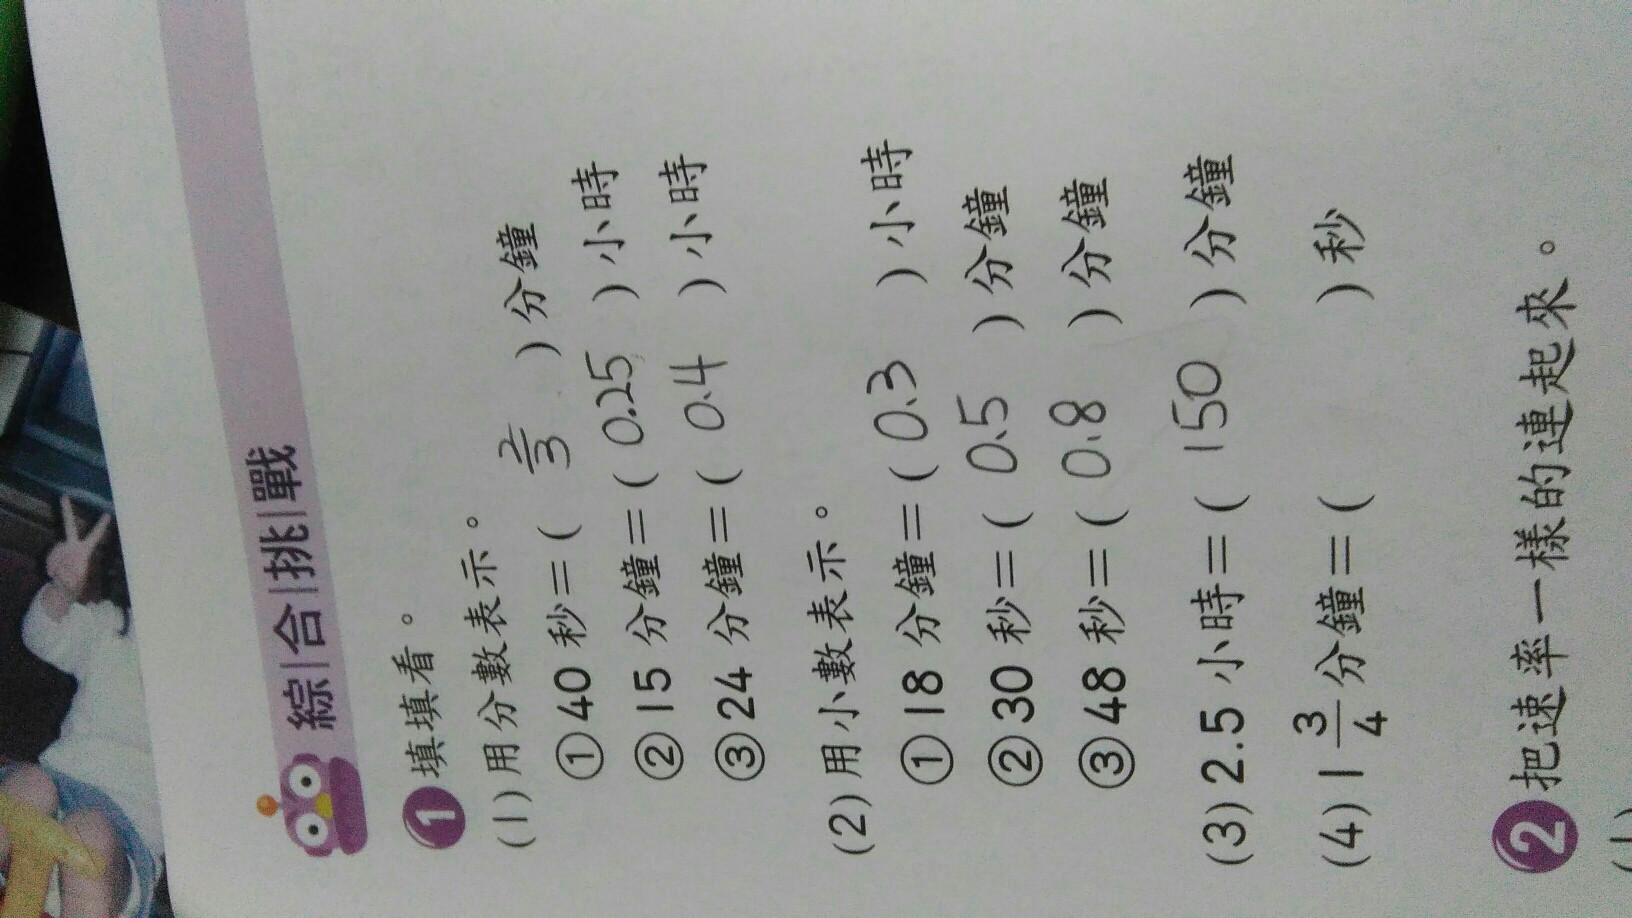 綜合挑戰
1 填填看。
(1)用分數表示。
①40 秒=( 2/3 )分鐘
②15 分鐘=( 0.25 )小時
③24 分鐘=( 0.4 )小時
(2)用小數表示。
①18 分鐘=( 0.3 )小時
②30 秒=( 0.5 )分鐘
③48 秒=( 0.8 )分鐘
(3)2.5 小時=( 150 )分鐘
(4)1 3/4 分鐘=( )秒
2 把速率一樣的連起來。